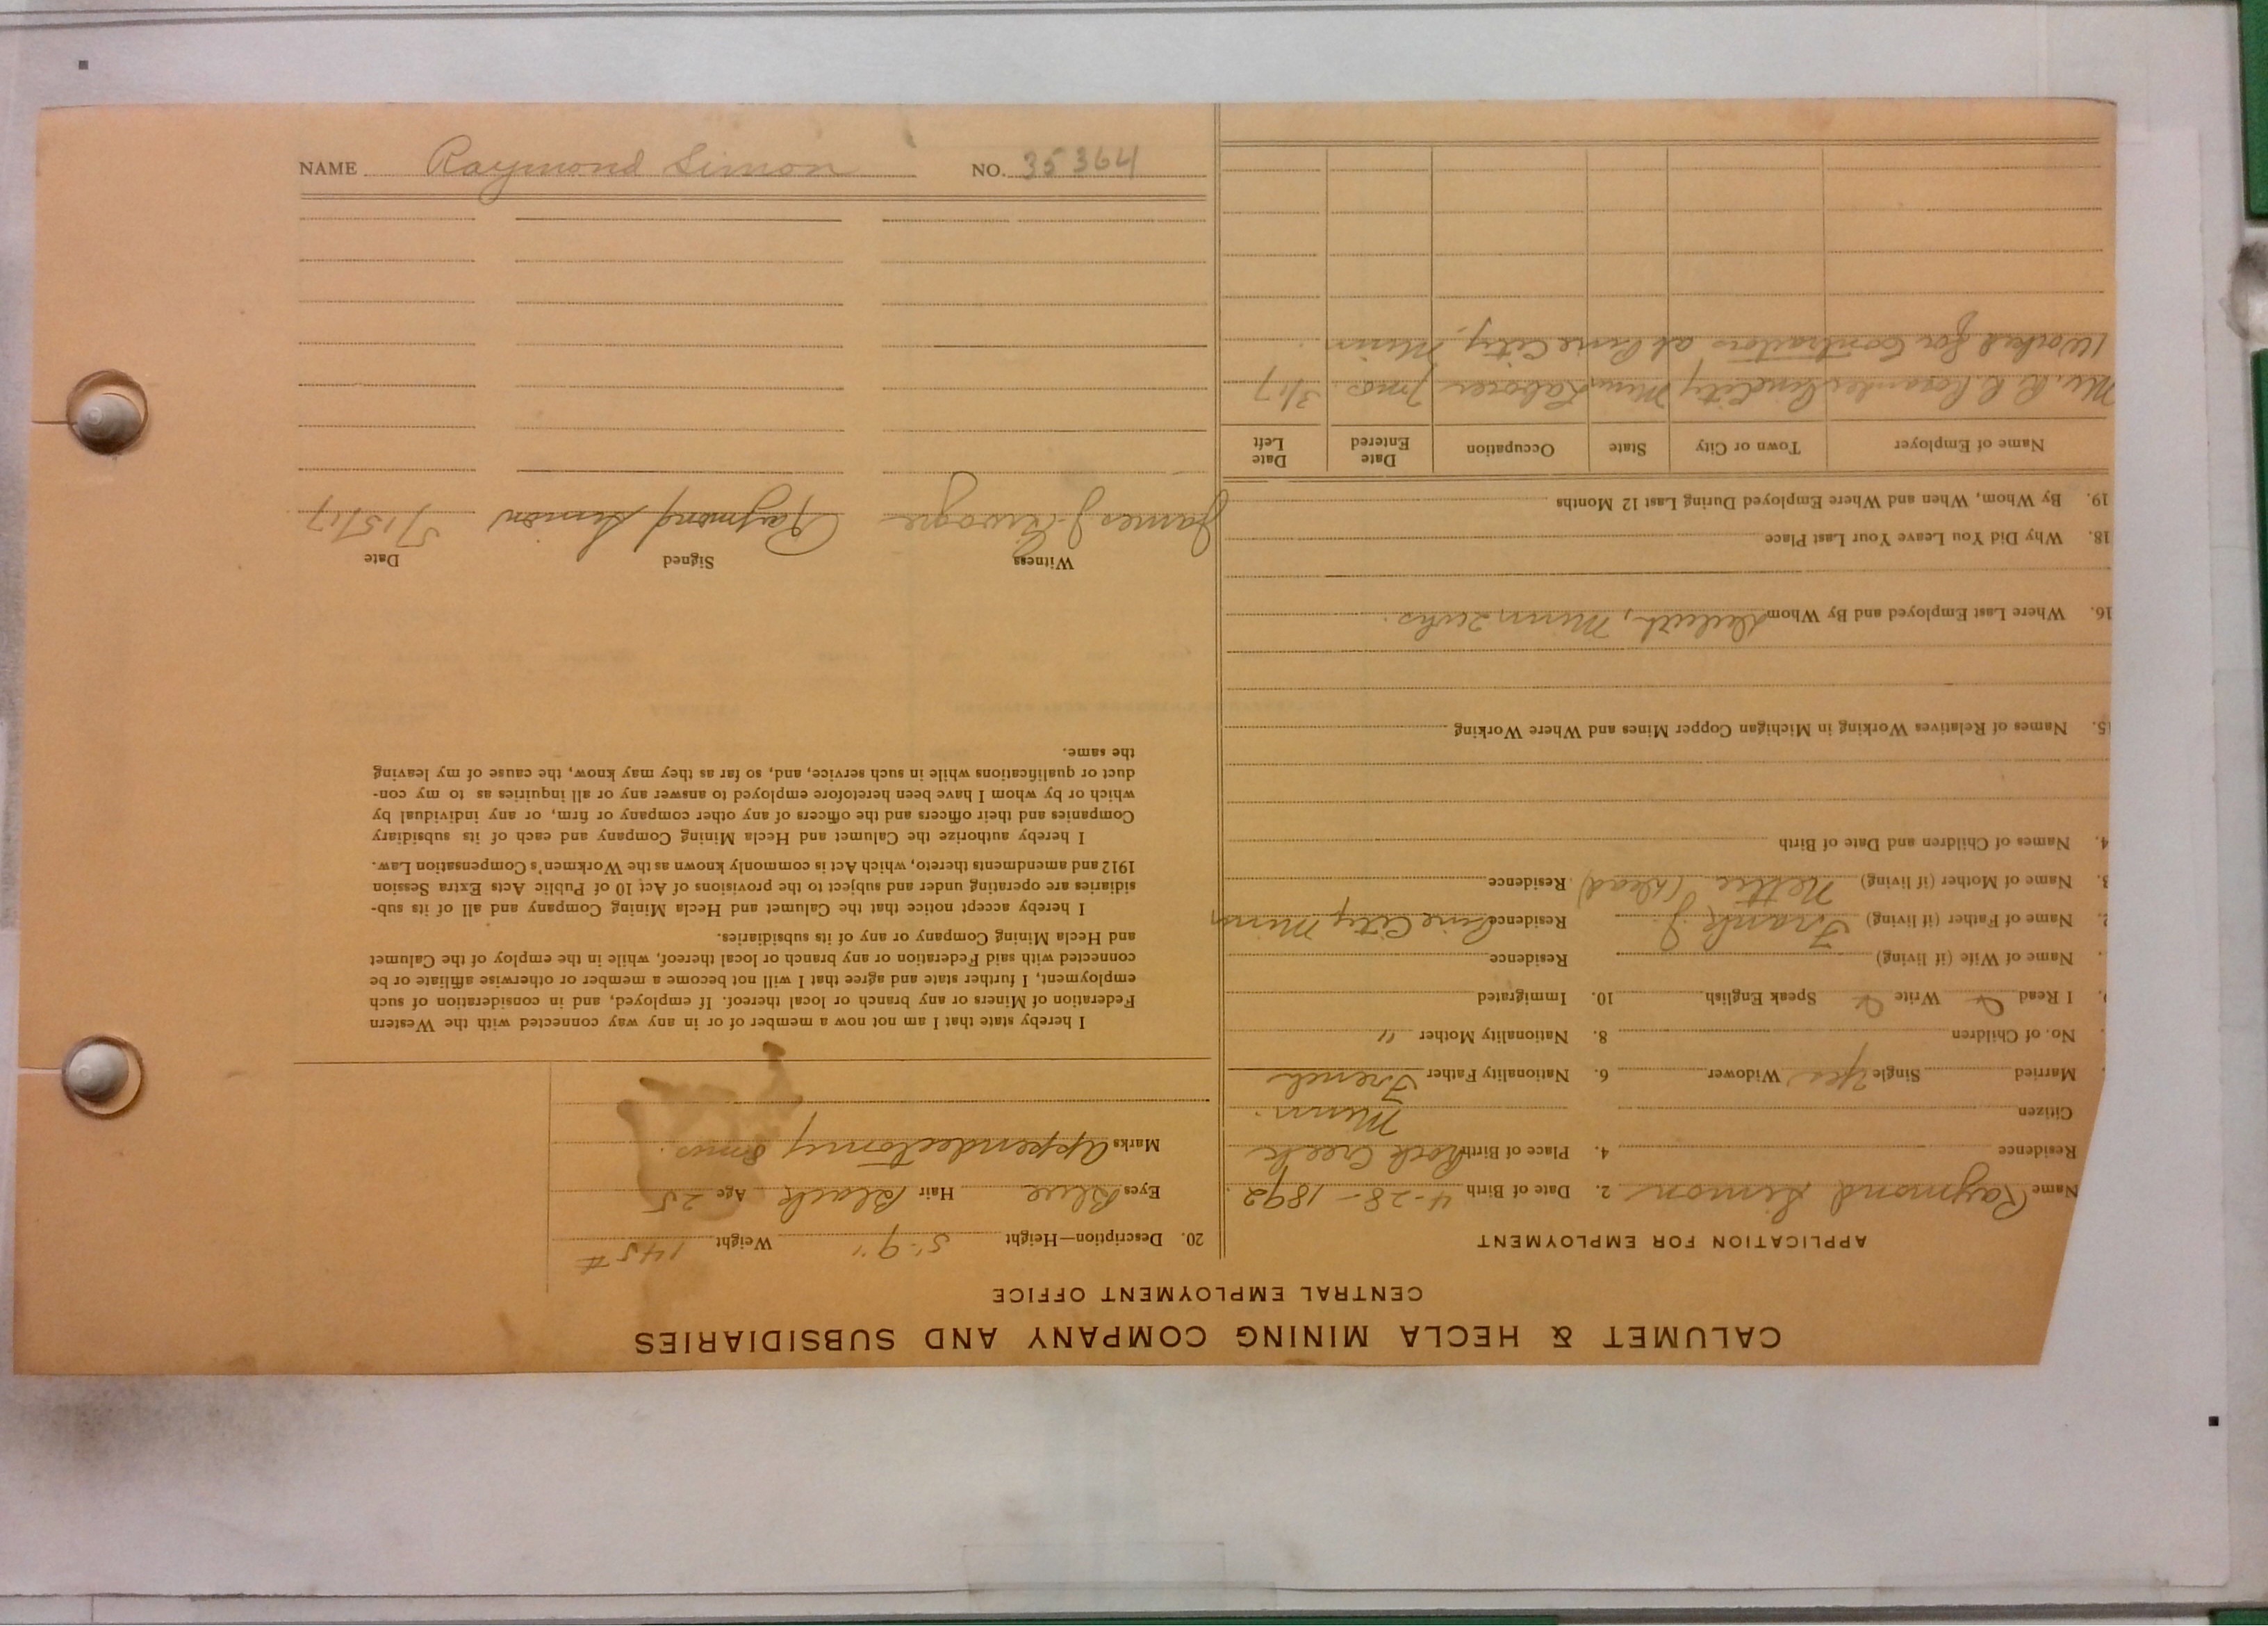 CALUMET & HECLA MINING COMPANY AND SUBSIDIARIES
CENTRAL EMPLOYMENT OFFICE
APPLICATION FOR EMPLOYMENT
Name Raymond Simon 2. Date of Birth 4-28-1892
Residence 4. Place of Birth Rock Creek
Citizen Minn.
Married Single Yes Widower 6. Nationality Father French
No. of Children 8. Nationality Mother "
9. I Read Write Speak English 10. Immigrated
Name of Wife (if living) Residence
2. Name of Father (if living) Frank J. Residence Pine City Minn
3. Name of Mother (if living) Nettie (Dead) Residence
4. Names of Children and Date of Birth
15. Names of Relatives Working in Michigan Copper Mines and Where Working
16. Where Last Employed and By Whom Duluth, Minn 2 wks.
18. Why Did You Leave Your Last Place
19. By Whom, When and Where Employed During Last 12 Months
Name of Employer Town or City State Occupation Date Entered Date Left
Pine City Minn Laborer 7 mos. 3/17
Worked for Contractors at Pine City, Minn.
20. Description—Height 5'-9" Weight 145#
Eyes Blue Hair Black Age 25
Marks Appendectomy 8 mos.
I hereby state that I am not now a member of or in any way connected with the Western
Federation of Miners or any branch or local thereof. If employed, and in consideration of such
employment, I further state and agree that I will not become a member or otherwise affiliate or be
connected with said Federation or any branch or local thereof, while in the employ of the Calumet
and Hecla Mining Company or any of its subsidiaries.
I hereby accept notice that the Calumet and Hecla Mining Company and all of its sub-
sidiaries are operating under and subject to the provisions of Act 10 of Public Acts Extra Session
1912 and amendments thereto, which Act is commonly known as the Workmen's Compensation Law.
I hereby authorize the Calumet and Hecla Mining Company and each of its subsidiary
Companies and their officers and the officers of any other company or firm, or any individual by
which or by whom I have been heretofore employed to answer any or all inquiries as to my con-
duct or qualifications while in such service, and, so far as they may know, the cause of my leaving
the same.
Witness Signed Date
James J. Raymond Simon 5/15/17
NAME Raymond Simon NO. 35364